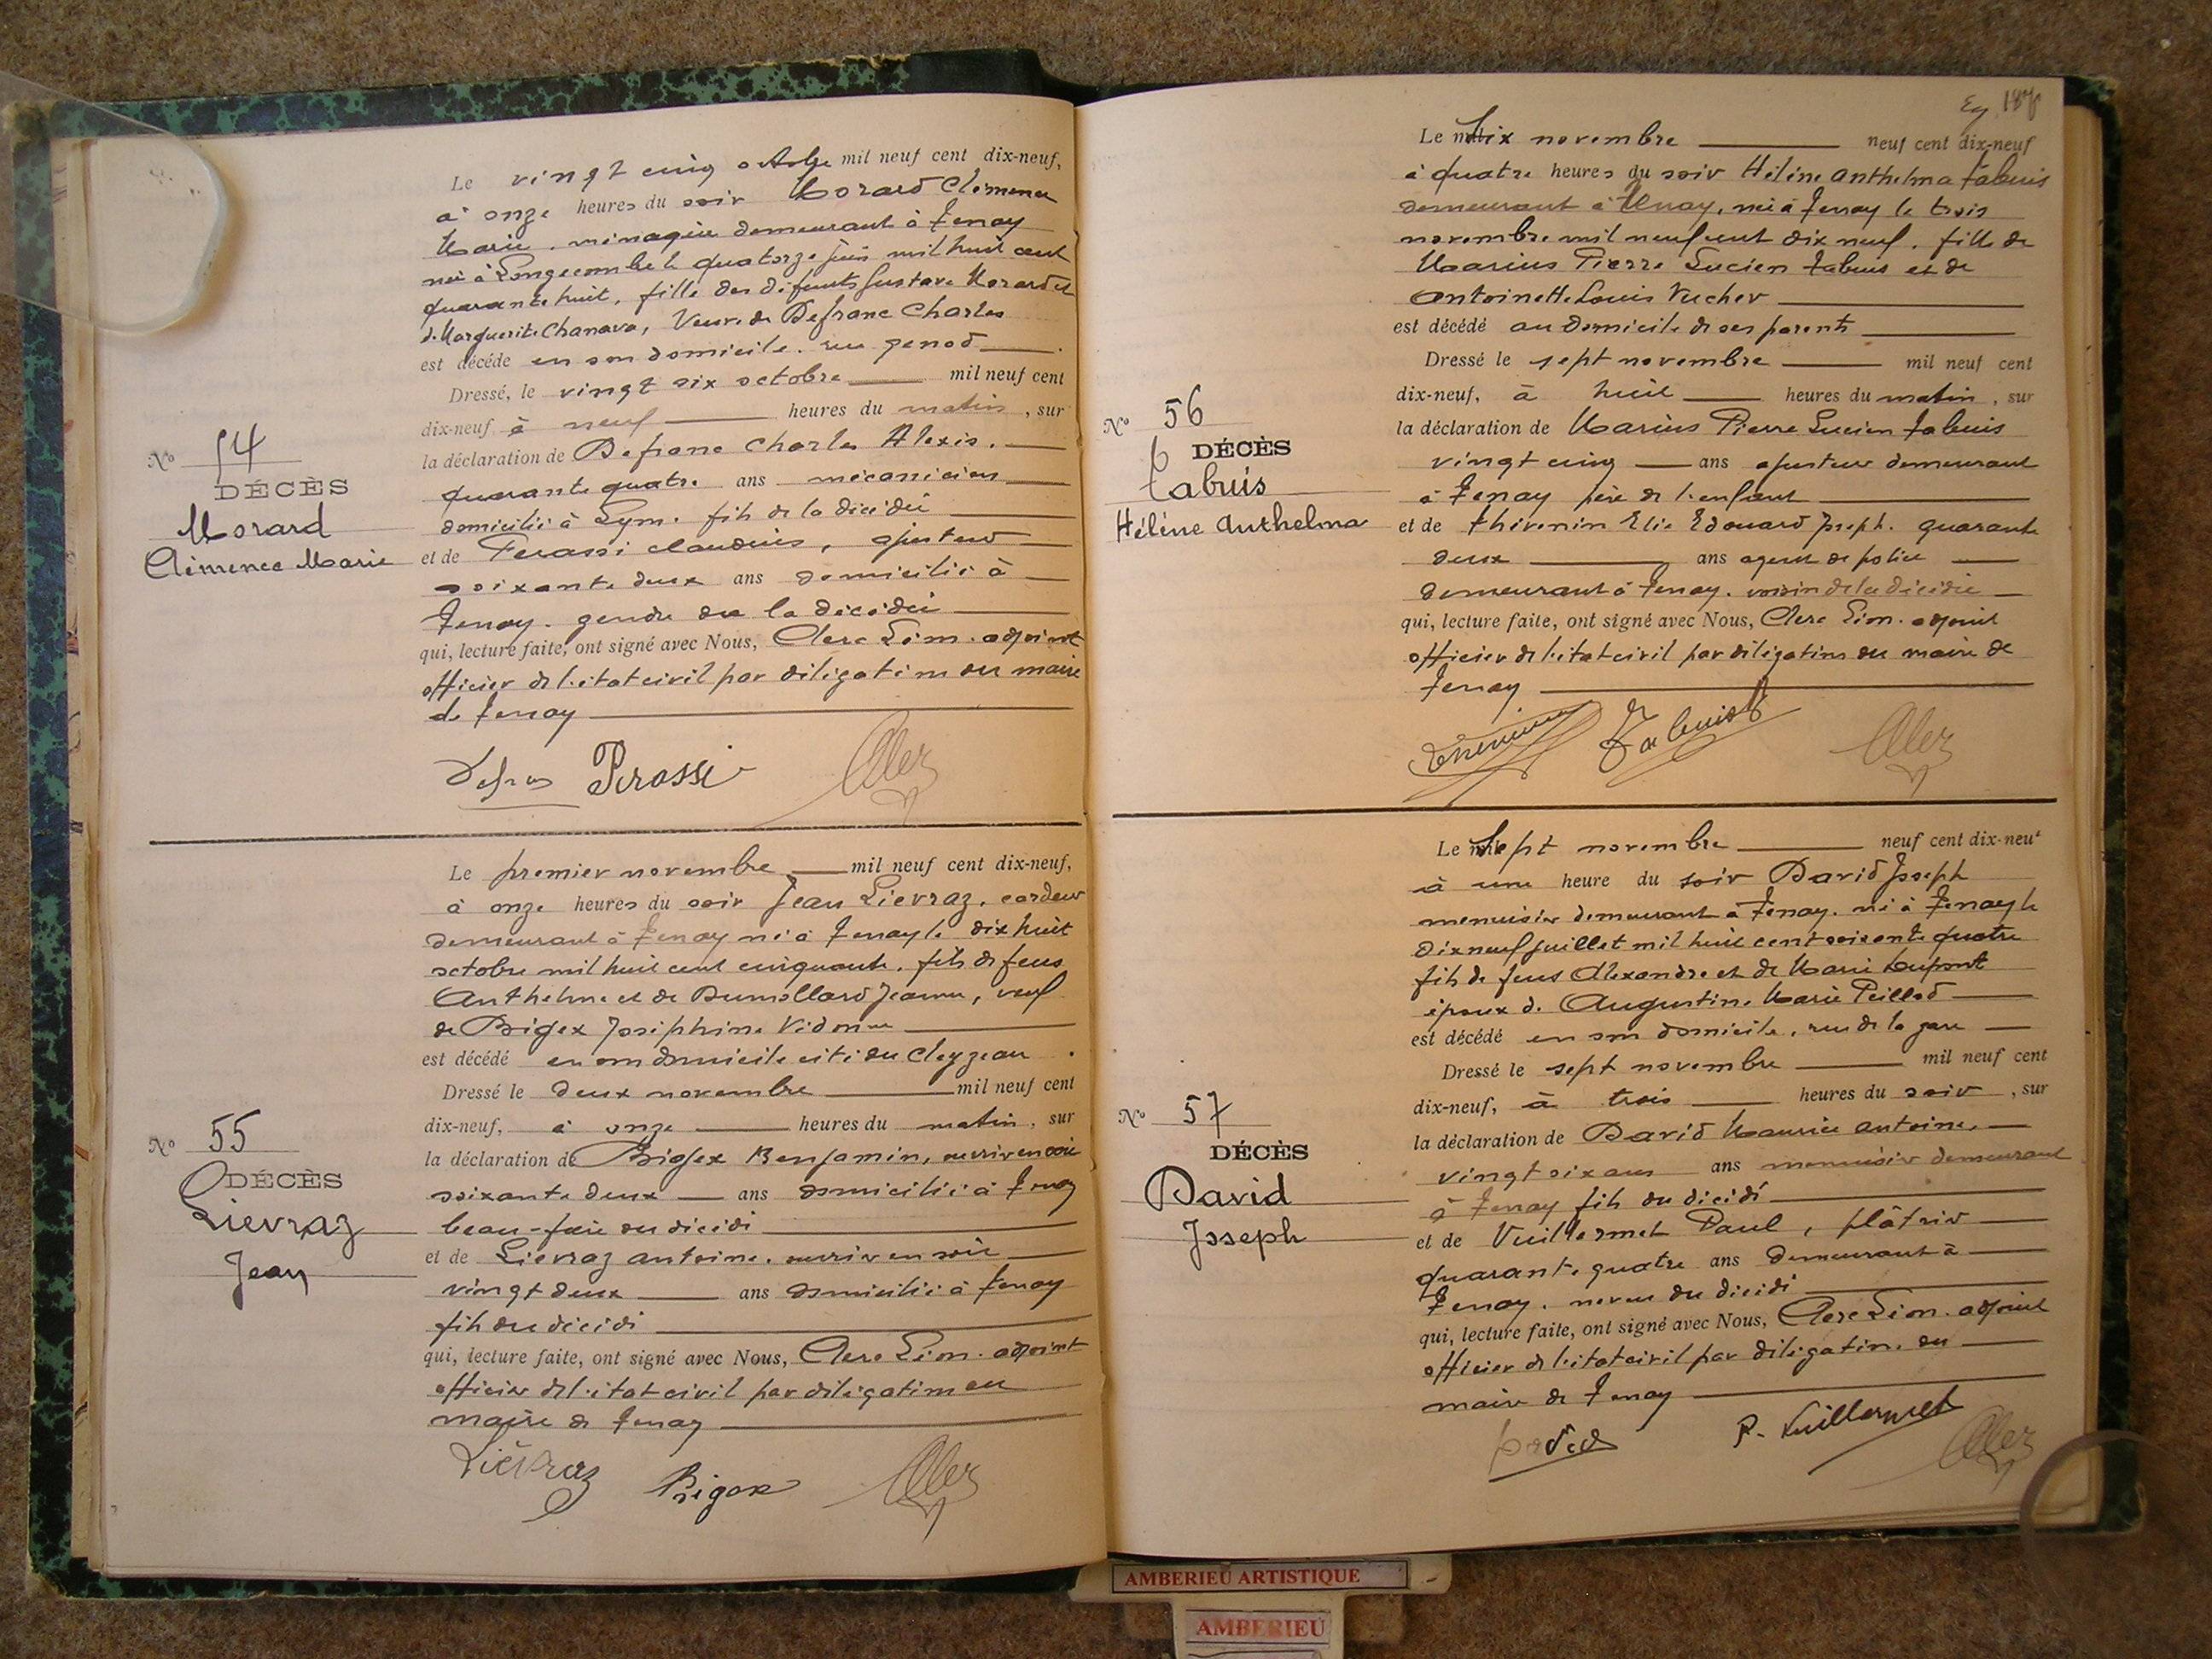 Le vingt cinq octobre mil neuf cent dix-neuf,
à onze heures du soir Morard Clémence
Marie. ménagère demeurant à Tenay
née à Longecombe le quatorze juin mil huit cent
quarante huit, fille des défunts Gustave Morard et
de Marguerite Chanava, Veuve de Defranc Charles
est décédé en son domicile. rue genod
Dressé, le vingt six octobre mil neuf cent
dix-neuf, à neuf heures du matin, sur
la déclaration de Defranc Charles Alexis.
quarante quatre ans mécanicien
domicilié à Lyon. fils de la décédée
et de Perassi Claudius, ajusteur
soixante deux ans domicilié à
Tenay. gendre de la décédée
qui, lecture faite, ont signé avec Nous, Clerc Léon. adjoint
officier de l'état civil par délégation du maire
de Tenay
Perossi
No 54
DÉCÈS
Morard
Clémence Marie
Le premier novembre mil neuf cent dix-neuf,
à onze heures du soir Jean Lievraz, cardeur
demeurant à Tenay né à Tenay le dix huit
octobre mil huit cent cinquante. fils de feus
Anthelme et de Dumollard Jeanne, veuf
de Bigex Joséphine Vidonne
est décédé en son domicile cité du Cleyzeau.
Dressé le deux novembre mil neuf cent
dix-neuf, à onze heures du matin, sur
la déclaration de Bigex Benjamin, ouvrier en soie
soixante deux ans domicilié à Tenay
beau-frère du décédé
et de Lievraz antoine. ouvrier en soie
vingt deux ans domicilié à Tenay
fils du décédé
qui, lecture faite, ont signé avec Nous, Clerc Léon. adjoint
officier de l'état civil par délégation du
maire de Tenay
Lièvraz Bigex
No 55
DÉCÈS
Lievraz
Jean
Le six novembre neuf cent dix-neuf
à quatre heures du soir Hélène Anthelma Tabuis
demeurant à Tenay, née à Tenay le trois
novembre mil neuf cent dix neuf. fille de
Marius Pierre Lucien Tabuis et de
Antoinette Louis Vucher
est décédé au domicile de ses parents
Dressé le sept novembre mil neuf cent
dix-neuf, à huit heures du matin, sur
la déclaration de Marius Pierre Lucien Tabuis
vingt cinq ans ajusteur demeurant
à Tenay père de l'enfant
et de Thévenin Elie Edouard Joseph. quarante
deux ans agent de police
demeurant à Tenay. voisin de la décédée
qui, lecture faite, ont signé avec Nous, Clerc Léon. adjoint
officier de l'état civil par délégation du maire de
Tenay
Thévenin Tabuis
No 56
DÉCÈS
Tabuis
Hélène Anthelma
Le Sept novembre neuf cent dix-neuf
à une heure du soir David Joseph
menuisier demeurant à Tenay. né à Tenay le
dix neuf juillet mil huit cent soixante quatre
fils de feus Alexandre et de Marie Dupont
époux de Augustine Marie Peillod
est décédé en son domicile, rue de la gare
Dressé le sept novembre mil neuf cent
dix-neuf, à trois heures du soir, sur
la déclaration de David Maurice antoine,
vingt six ans ans menuisier demeurant
à Tenay fils du décédé
et de Vuillermet Paul, plâtrier
quarante quatre ans demeurant à
Tenay. neveu du décédé
qui, lecture faite, ont signé avec Nous, Clerc Léon. adjoint
officier de l'état civil par délégation. du
maire de Tenay
David P. Vuillermet
No 57
DÉCÈS
David
Joseph
AMBERIEU ARTISTIQUE
AMBERIEU